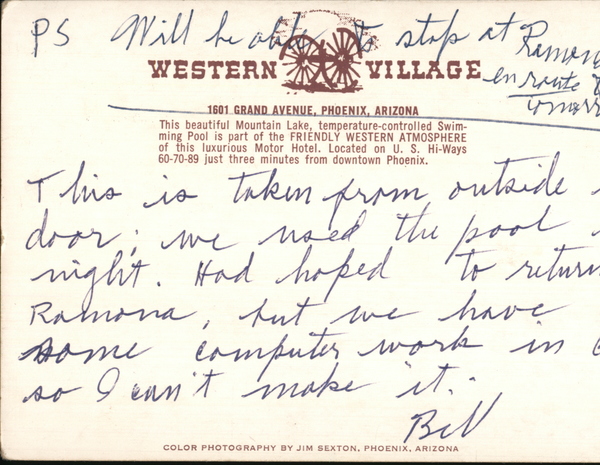 PS Will be able to stop at Ramon
en route
tomorr
WESTERN VILLAGE
1601 GRAND AVENUE, PHOENIX, ARIZONA
This beautiful Mountain Lake, temperature-controlled Swim-
ming Pool is part of the FRIENDLY WESTERN ATMOSPHERE
of this luxurious Motor Hotel. Located on U. S. Hi-Ways
60-70-89 just three minutes from downtown Phoenix.
This is taken from outside
door; we used the pool
night. Had hoped to return
Ramona, but we have
some computer work in
so I can't make it.
Bill
COLOR PHOTOGRAPHY BY JIM SEXTON, PHOENIX, ARIZONA